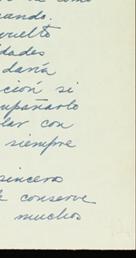 ando.
vuelto
dades
daría
ción si
mpañarlo
lar con
siempre
sincera
conserve
muchos